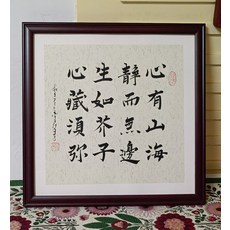 心有山海
静而無邊
生如芥子
心藏須弥